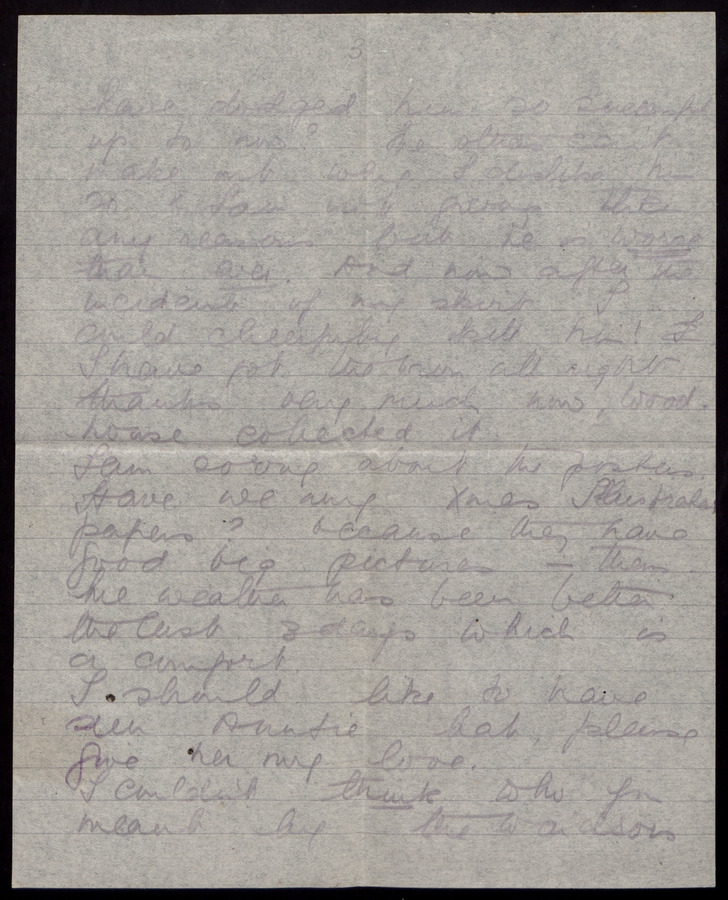 3
have dodged him so successful
up to now? The others can't
make out why I dislike him
so. I say not giving them
any reasons but he is worse
than ever. And now after the
incident of my skirt I
could cheerfully kill him! I
I have got the all right
thanks very much now, Wood-
house collected it.
I am sorry about the posters.
Have we any Xmas Illustrated
papers? because they have
good big pictures – them
The weather has been better
the last 3 days which is
a comfort.
I should like to have
seen Auntie Bab, please
give her my love.
I couldn't think who you
meant by the